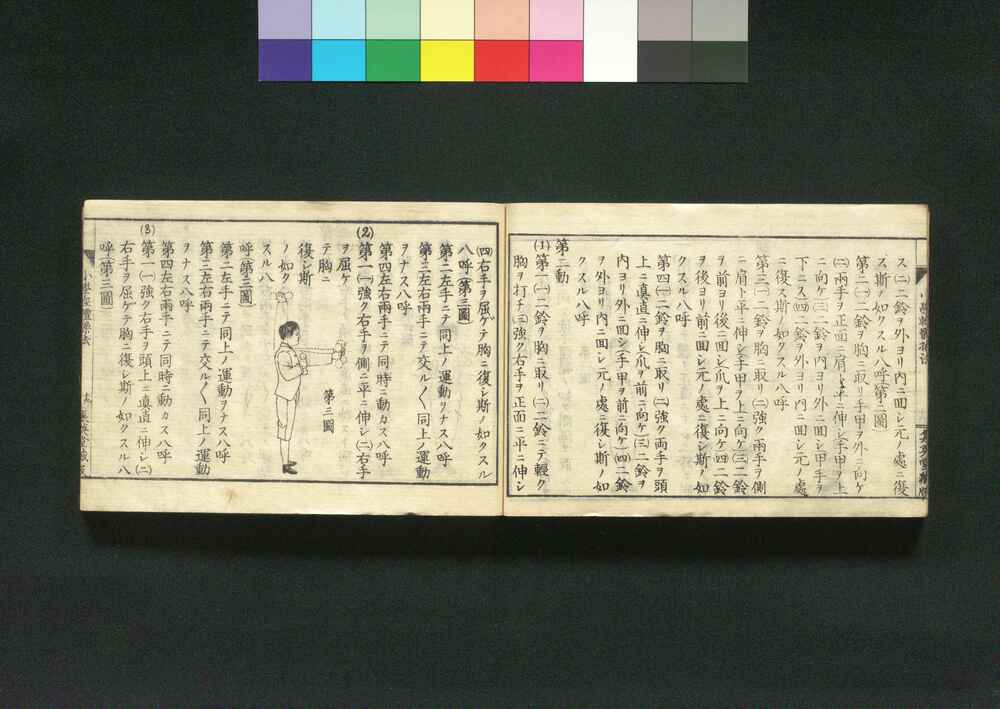 ス(二)二鈴ヲ外ヨリ內ニ囬シ元ノ處ニ復
ス斯ノ如クスル八呼(第二圖)
第二(一)二鈴ヲ胸ニ取リ手甲ヲ外ニ向ケ
(二)兩手ヲ正面ニ肩ト平ニ伸シ手甲ヲ上
ニ向ケ(三)二鈴ヲ內ヨリ外ニ囬シ甲手ヲ
下ニス(四)二鈴ヲ外ヨリ內ニ囬シ元ノ處
ニ復ス斯ノ如クスル八呼
第三(一)二鈴ヲ胸ニ取リ(二)強ク兩手ヲ側
ニ肩ト平ニ伸シ手甲ヲ上ニ向ケ(三)二鈴
ヲ前ヨリ後ニ囬シ爪ヲ上ニ向ケ(四)二鈴
ヲ後ヨリ前ニ囬シ元ノ處ニ復シ斯ノ如
クスル八呼
第四(一)二鈴ヲ胸ニ取リ(二)強ク兩手ヲ頭
上ニ眞直ニ伸シ爪ヲ前ニ向ケ(三)二鈴ヲ
內ヨリ外ニ囬シ手甲ヲ前ニ向ケ(四)二鈴
ヲ外ヨリ內ニ囬シ元ノ處ニ復シ斯ノ如
クスル八呼
第二動
(1)第一(一)二鈴ヲ胸ニ取リ(二)二鈴ニテ輕ク
胸ヲ打チ(三)強ク右手ヲ正面ニ平ニ伸シ
(四)右手ヲ屈ゲテ胸ニ復シ斯ノ如クスル
八呼(第三圖)
第二左手ニテ同上ノ運動ヲナス八呼
第三左右兩手ニテ交ル〱同上ノ運動
ヲナス八呼
第四左右兩手ニテ同時ニ動カス八呼
(2)第一(一)強ク右手ヲ側ニ平ニ伸シ(二)右手
ヲ屈ケ
テ胸ニ
復シ斯
ノ如ク
スル八
呼(第三圖)
第三圖
第二左手ニテ同上ノ運動ヲナス八呼
第三左右兩手ニテ交ル〱同上ノ運動
ヲナス八呼
第四左右兩手ニテ同時ニ動カス八呼
(3)第一(一)強ク右手ヲ頭上ニ眞直ニ伸シ(二)
右手ヲ屈ゲテ胸ニ復シ斯ノ如クスル八
呼(第三圖)